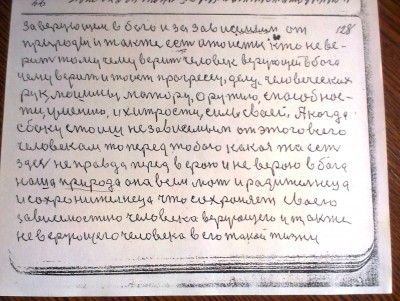 Заверующем в бога и за зависимем от
природы и также есть атоисти, кто неве-
рит тому чему верит человек верующей в бога
чему верит и тоест прогрессу, делу. человеческих
рук, машины, мотору, Оружию, способнос-
ти, умению, и хитрости, силы своей, А когда
сбоку стоиш независимым от этого всего
человекам то перед тобою какая жа есть
здесь неправда перед верою и неверою в бога
наша природа она всем мать и радительница
и сохронительница что сохроняет своего
зависимостию человека верующего и также
неверующего человека в его такой жизни
128